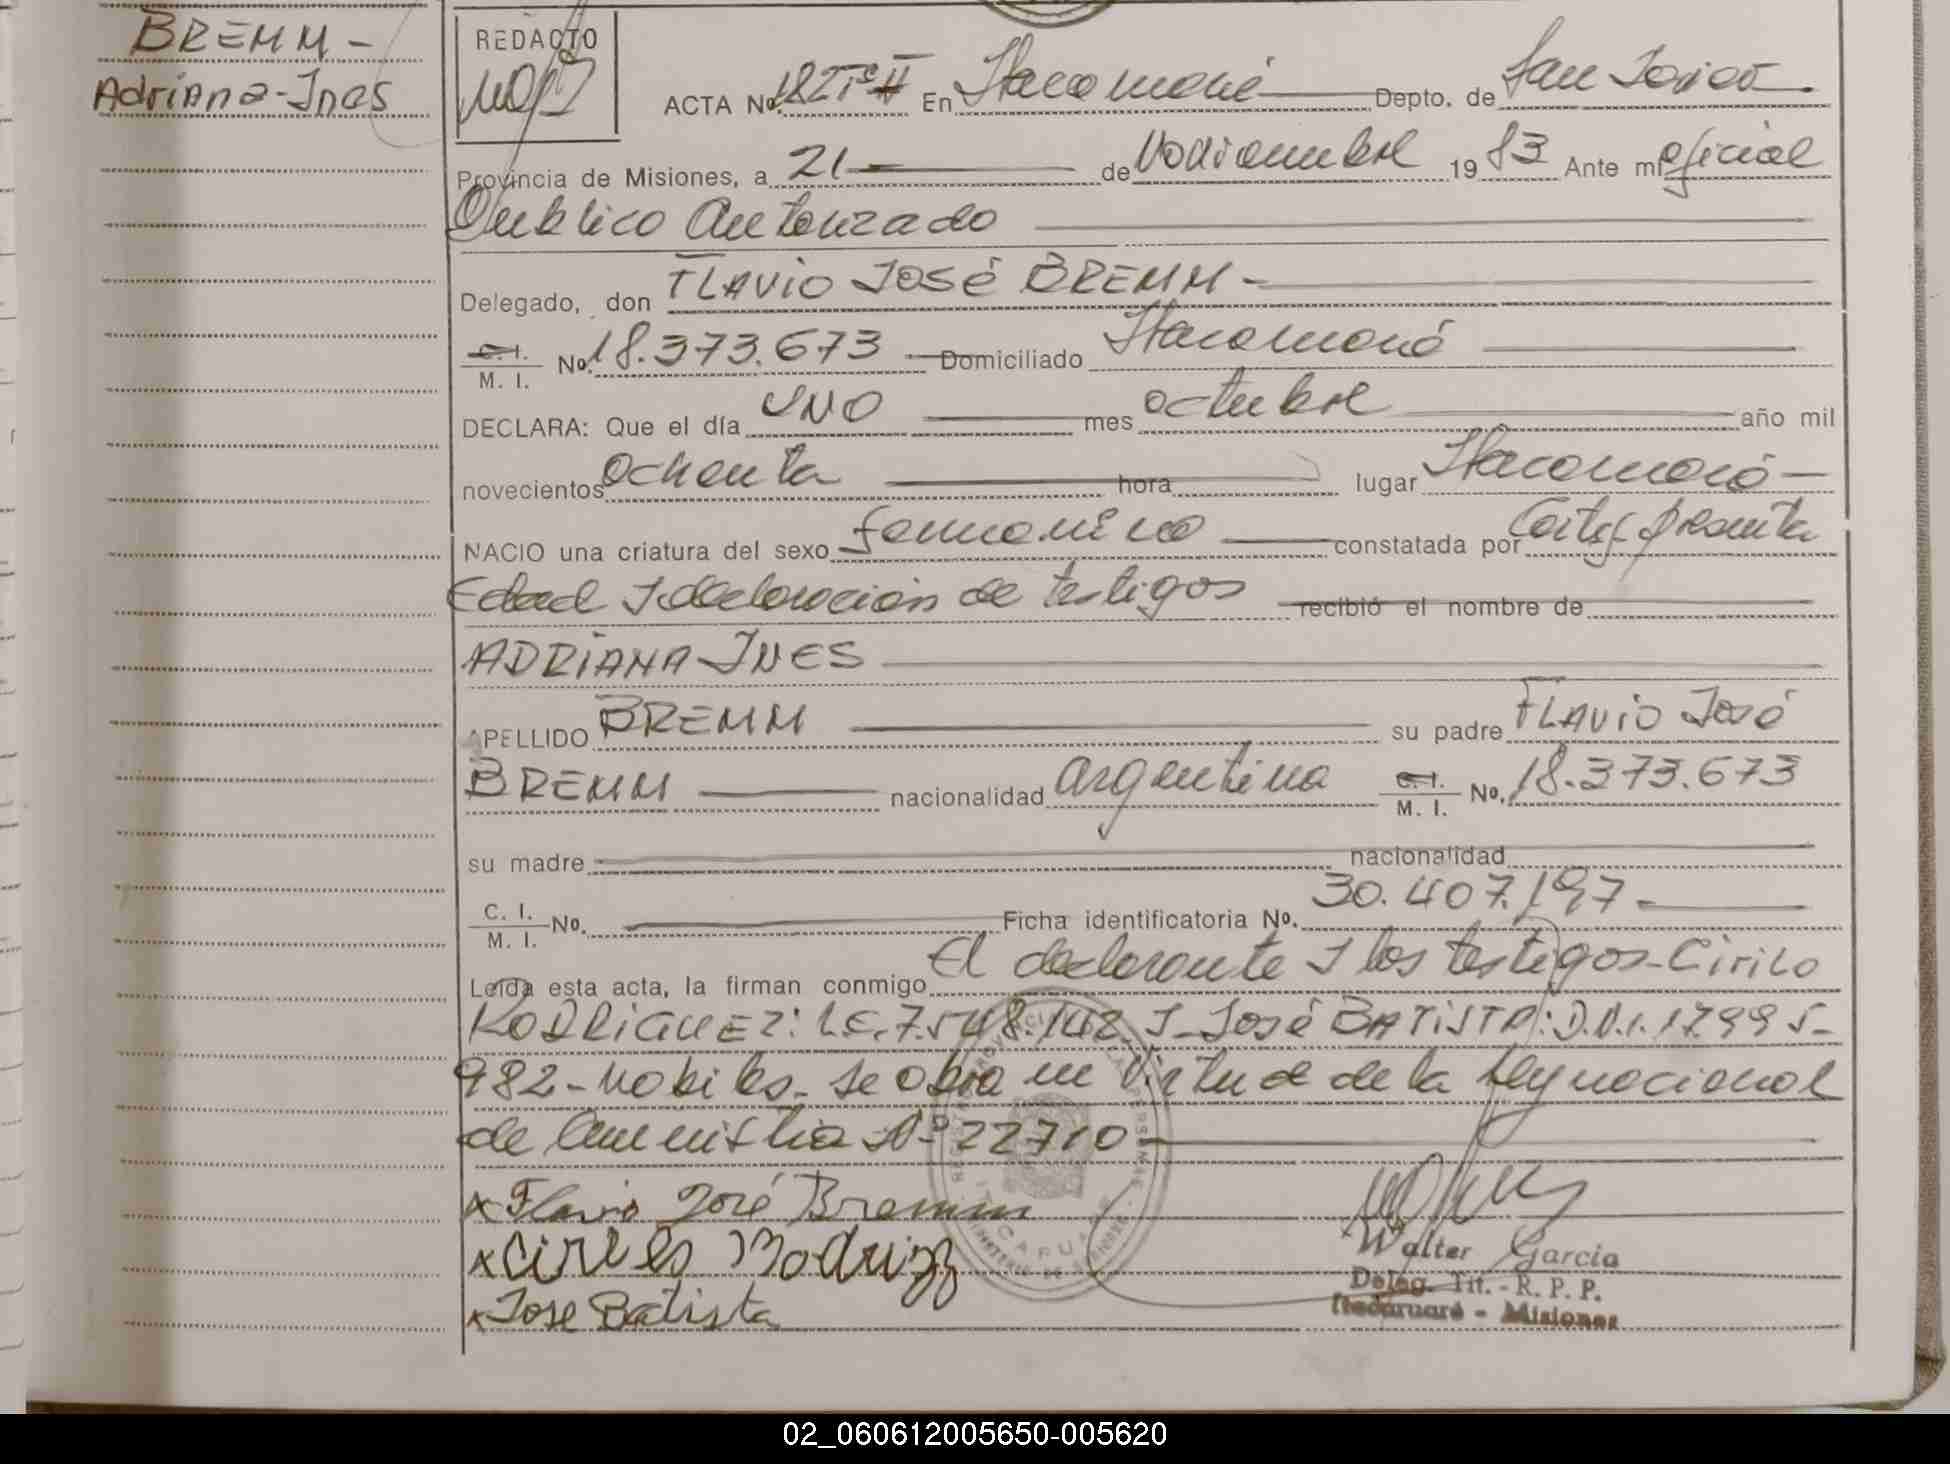 BREMM -
Adriana-Ines
REDACTO
ACTA No. 182 Tº II En Itacaruaré Depto. de San Javier.
Provincia de Misiones, a 21 de Noviembre 1983 Ante mi oficial
Publico Autorizado
Delegado, don FLAVIO JOSÉ BREMM -
C. I. M. I. No. 18.373.673 Domiciliado Itacaruaré
DECLARA: Que el día UNO mes octubre año mil
novecientos ochenta hora lugar Itacaruaré -
NACIO una criatura del sexo femenino constatada por Certif. presunta
Edad y declaración de testigos recibió el nombre de
ADRIANA INES
APELLIDO BREMM su padre FLAVIO José
BREMM nacionalidad argentina C. I. M. I. No. 18.373.673
su madre nacionalidad
C. I. M. I. No. Ficha identificatoria No. 30.407.197 -
Leída esta acta, la firman conmigo El declarante y los testigos - CIRILO
RODRIGUEZ: L.E. 7.548.142 y José BATISTA: D.N.I. 17.995-
982 - habiles - se labra en Virtud de la Ley nacional
de Amnistia Nº 22710 -
x Flavio José Bremm
x
x Jose Batista
Walter Garcia
Deleg. Tit. - R. P. P.
Itacaruaré - Misiones
02_060612005650-005620